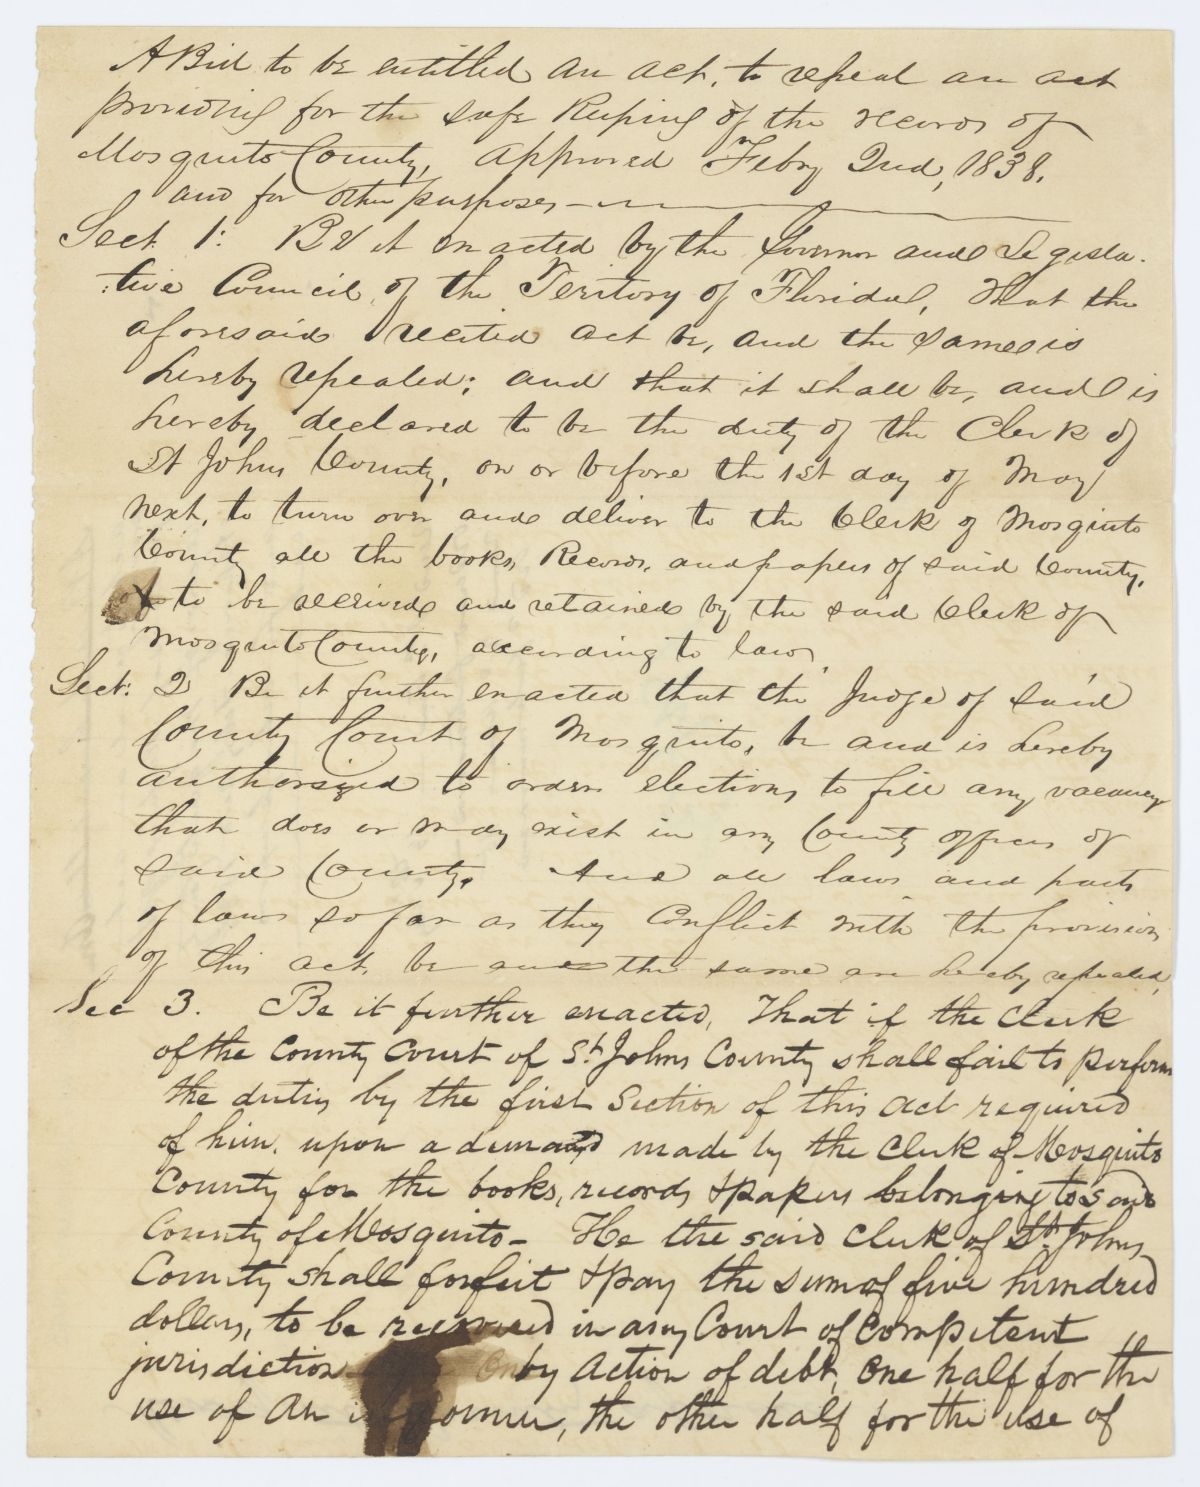 A Bill to be entitled an act, to repeal an act
providing for the safe Keeping of the records of
Mosquito County, approved Febry 2nd, 1838.
and for other purposes
Sect. 1: Be it enacted by the Governor and Legisla-
tive Council of the Territory of Florida, That the
aforesaid recited act be, and the same is
hereby repealed; and that it shall be, and is
hereby declared to be the duty of the Clerk of
St Johns County, on or before the 1st day of May
next, to turn over and deliver to the Clerk of Mosquito
County all the books, Records, and papers of said County,
to be received and retained by the said Clerk of
Mosquito County, according to law,
Sect: 2 Be it further enacted that the Judge of said
County Court of Mosquito, be and is hereby
authorized to order elections to fill any vacancy
that does or may exist in any County offices of
said County. And all laws and parts
of laws so far as they conflict with the provisions
of this act, be and the same are hereby repealed,
Sec 3. Be it further enacted, That if the Clerk
of the County Court of St Johns County shall fail to perform
the duties by the first Section of this act required
of him, upon a demand made by the Clerk of Mosquito
County for the books, records & papers belonging to said
County of Mosquito - He the said Clerk of St Johns
County shall forfeit & pay the sum of five hundred
dollars, to be recovered in any Court of Competent
jurisdiction by Action of debt, one half for the
use of An informer, the other half for the use of